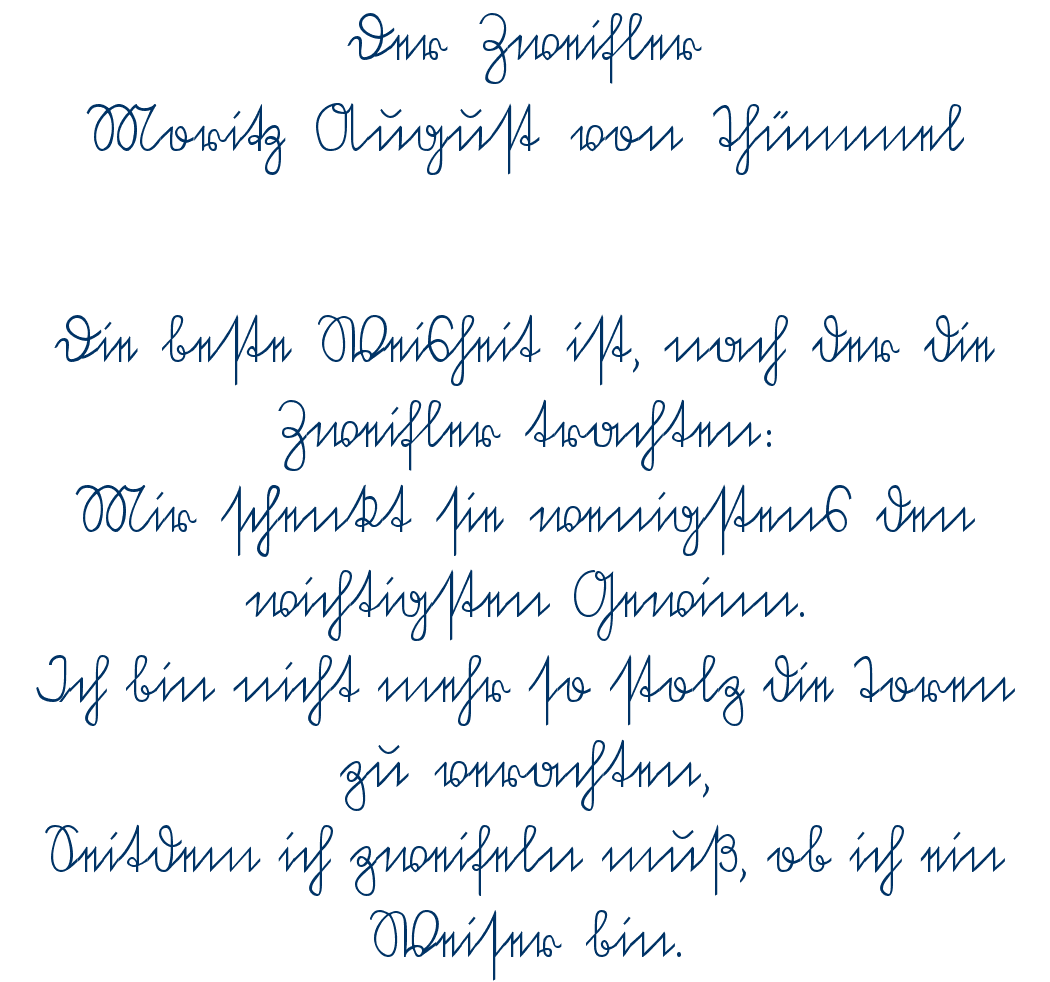 Der Zweifler
Moritz August von Thümmel
Die beste Weisheit ist, nach der die
Zweifler trachten:
Mir schenkt sie wenigstens den
wichtigsten Gewinn.
Ich bin nicht mehr so stolz die Toren
zu verachten,
Seitdem ich zweifeln muß, ob ich ein
Weiser bin.